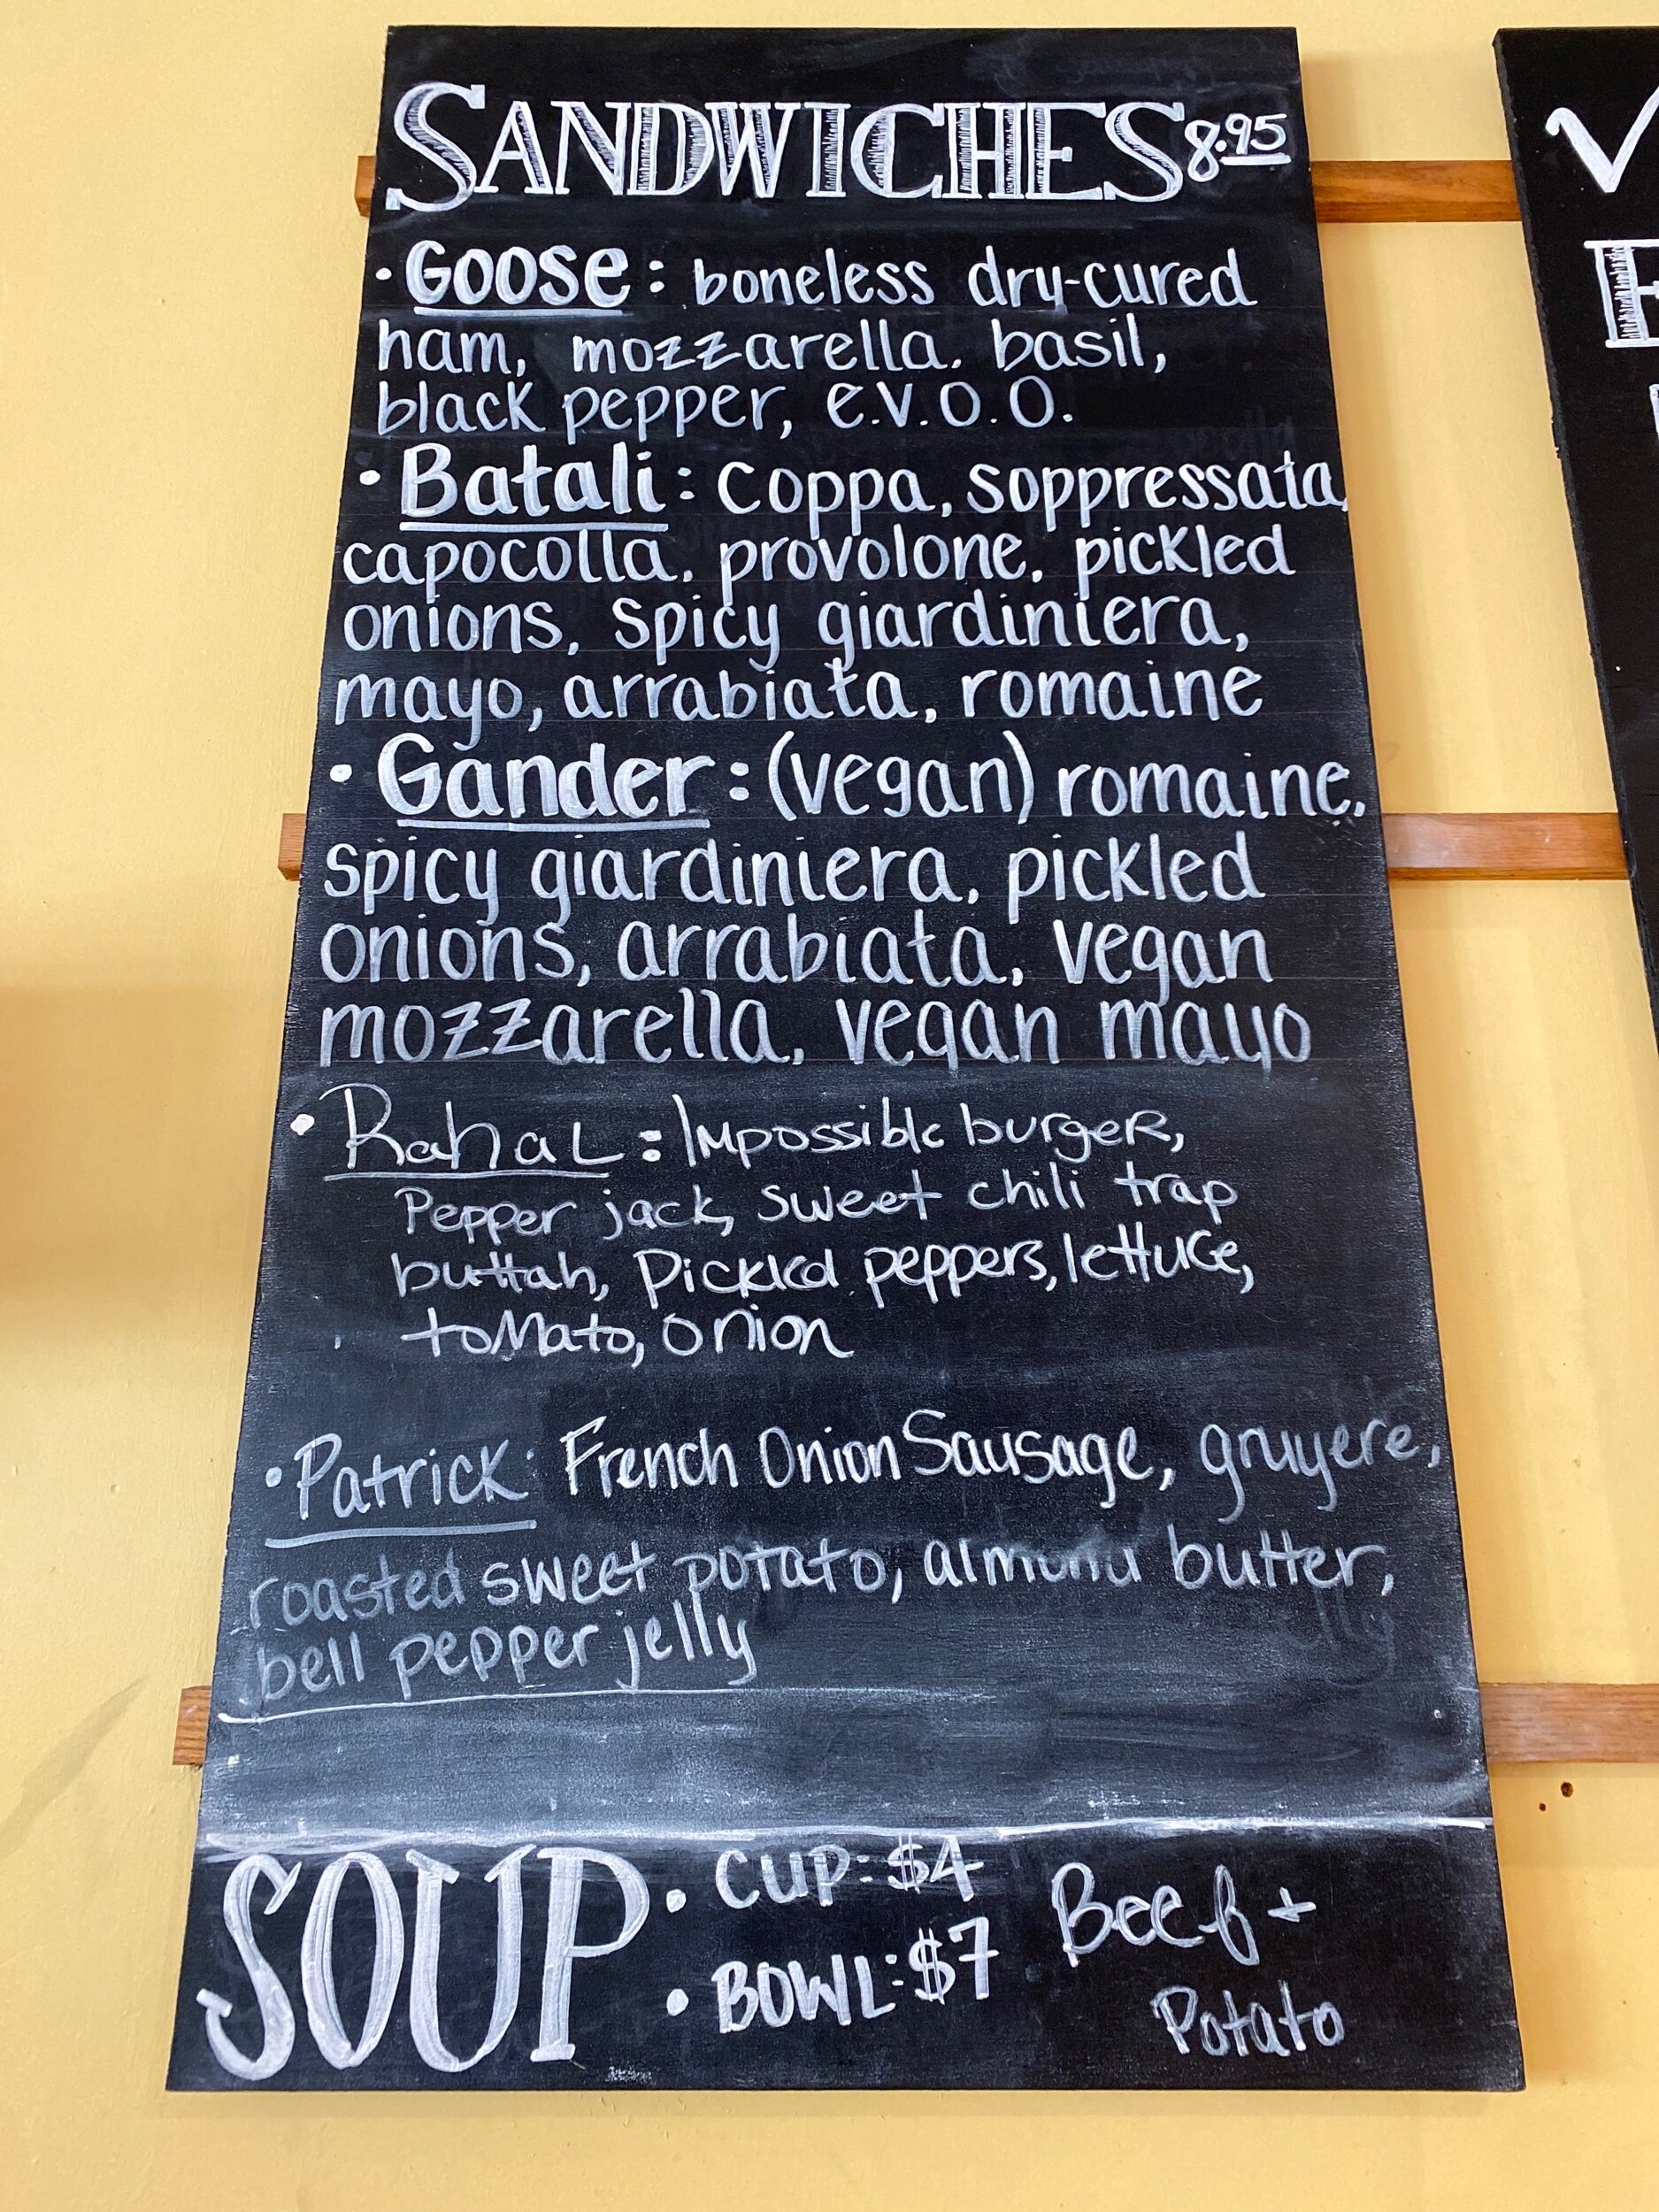 SANDWICHES 8.95
• Goose: boneless dry-cured
ham, mozzarella, basil,
black pepper, e.v.o.o.
• Batali: coppa, soppressata,
capocolla, provolone, pickled
onions, spicy giardiniera,
mayo, arrabiata, romaine
• Gander: (vegan) romaine,
spicy giardiniera, pickled
onions, arrabiata, vegan
mozzarella, vegan mayo
• Rahal: Impossible burger,
Pepper jack, sweet chili trap
buttah, Pickled peppers, lettuce,
tomato, onion
• Patrick: French Onion Sausage, gruyere,
roasted sweet potato, almond butter,
bell pepper jelly
SOUP • CUP: $4
• BOWL: $7
Beef +
Potato